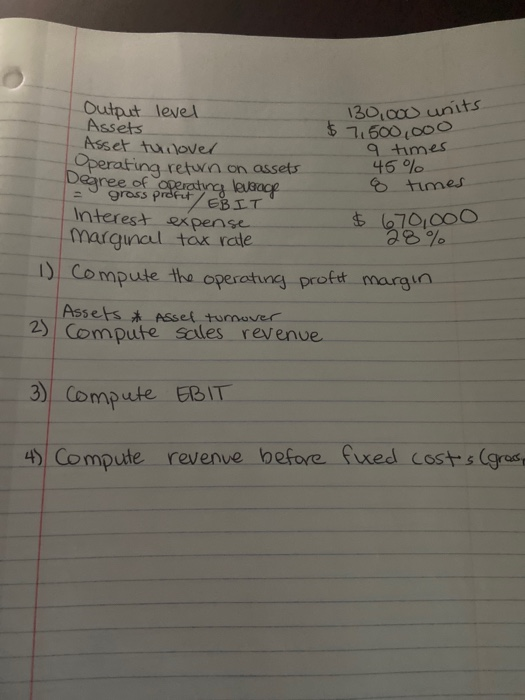 Output level 130,000 units
Assets $ 7,500,000
Asset turnover 9 times
Operating return on assets 45%
Degree of operating leverage 8 times
= gross profit / EBIT
Interest expense $ 670,000
Marginal tax rate 28%
1) Compute the operating profit margin
Assets * Asset turnover
2) Compute sales revenue
3) Compute EBIT
4) Compute revenue before fixed costs (gross